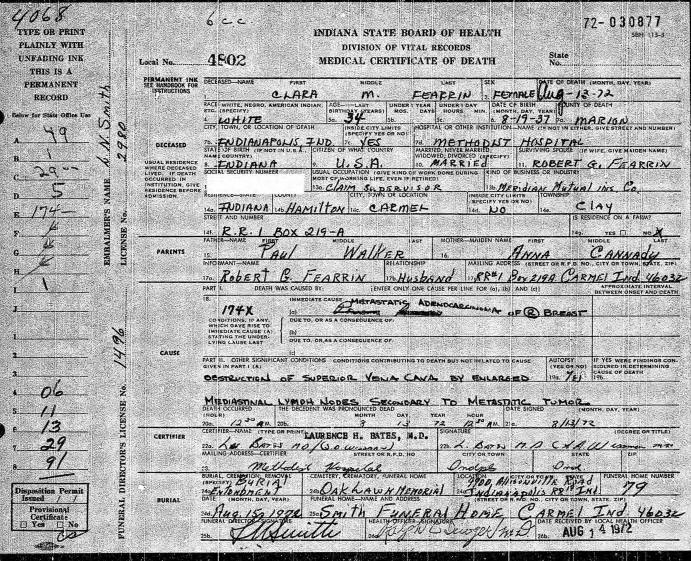 4068
6cc
72-030877
TYPE OR PRINT
PLAINLY WITH
UNFADING INK
THIS IS A
PERMANENT
RECORD
Below for State Office Use
INDIANA STATE BOARD OF HEALTH
DIVISION OF VITAL RECORDS
MEDICAL CERTIFICATE OF DEATH
Local No. 4802
State No.
PERMANENT INK
SEE HANDBOOK FOR
INSTRUCTIONS
DECEASED—NAME FIRST MIDDLE LAST SEX DATE OF DEATH (MONTH, DAY, YEAR)
CLARA M. FEARRIN FEMALE Aug-13-72
RACE WHITE, NEGRO, AMERICAN INDIAN, ETC. (SPECIFY) AGE—LAST BIRTHDAY (YEARS) UNDER 1 YEAR MOS. DAYS UNDER 1 DAY HOURS MIN. DATE OF BIRTH (MONTH, DAY, YEAR) COUNTY OF DEATH
WHITE 34 8-19-37 MARION
CITY, TOWN, OR LOCATION OF DEATH INSIDE CITY LIMITS (SPECIFY YES OR NO) HOSPITAL OR OTHER INSTITUTION—NAME (IF NOT IN EITHER, GIVE STREET AND NUMBER)
INDIANAPOLIS, IND. YES METHODIST HOSPITAL
DECEASED
STATE OF BIRTH (IF NOT IN U.S.A., NAME COUNTRY) CITIZEN OF WHAT COUNTRY MARRIED, NEVER MARRIED, WIDOWED, DIVORCED (SPECIFY) SURVIVING SPOUSE (IF WIFE, GIVE MAIDEN NAME)
INDIANA U.S.A. MARRIED ROBERT G. FEARRIN
USUAL RESIDENCE
WHERE DECEASED
LIVED. IF DEATH
OCCURRED IN
INSTITUTION, GIVE
RESIDENCE BEFORE
ADMISSION.
SOCIAL SECURITY NUMBER USUAL OCCUPATION (GIVE KIND OF WORK DONE DURING MOST OF WORKING LIFE, EVEN IF RETIRED) KIND OF BUSINESS OR INDUSTRY
CLAIM SUPERVISOR MERIDIAN MUTUAL INS. CO.
RESIDENCE—STATE COUNTY CITY, TOWN OR LOCATION INSIDE CITY LIMITS (SPECIFY YES OR NO) TOWNSHIP
INDIANA 14b. HAMILTON CARMEL NO CLAY
STREET AND NUMBER IS RESIDENCE ON A FARM?
R.R.1 BOX 219-A YES NO X
PARENTS
FATHER—NAME FIRST MIDDLE LAST MOTHER—MAIDEN NAME FIRST MIDDLE LAST
PAUL WALKER ANNA CANNADY
INFORMANT—NAME RELATIONSHIP MAILING ADDRESS (STREET OR R.F.D. NO., CITY OR TOWN, STATE, ZIP)
ROBERT G. FEARRIN 17b. HUSBAND RR#1 BOX 219A CARMEL IND 46032
PART I. DEATH WAS CAUSED BY: (ENTER ONLY ONE CAUSE PER LINE FOR (a), (b) AND (c)) APPROXIMATE INTERVAL BETWEEN ONSET AND DEATH
18. IMMEDIATE CAUSE
174X METASTATIC ADENOCARCINOMA OF (R) BREAST
CONDITIONS, IF ANY,
WHICH GAVE RISE TO
IMMEDIATE CAUSE (a)
STATING THE UNDER-
LYING CAUSE LAST
DUE TO, OR AS A CONSEQUENCE OF:
(b)
DUE TO, OR AS A CONSEQUENCE OF:
(c)
CAUSE
PART II. OTHER SIGNIFICANT CONDITIONS CONDITIONS CONTRIBUTING TO DEATH BUT NOT RELATED TO CAUSE GIVEN IN PART I (A) AUTOPSY (YES OR NO) IF YES WERE FINDINGS CONSIDERED IN DETERMINING CAUSE OF DEATH
19a. YES 19b.
OBSTRUCTION OF SUPERIOR VENA CAVA BY ENLARGED
MEDIASTINAL LYMPH NODES SECONDARY TO METASTATIC TUMOR.
DEATH OCCURRED (HOUR) THE DECEDENT WAS PRONOUNCED DEAD MONTH DAY YEAR HOUR DATE SIGNED (MONTH, DAY, YEAR)
12:30 AM. 8 13 72 12:30 AM. 8/13/72
CERTIFIER
CERTIFIER—NAME (TYPE OR PRINT) SIGNATURE (DEGREE OR TITLE)
LAURENCE H. BATES, M.D.
MAILING ADDRESS—CERTIFIER STREET OR R.F.D. NO. CITY OR TOWN STATE ZIP
Methodist Hospital Indpls Ind
BURIAL
BURIAL, CREMATION, REMOVAL (SPECIFY) CEMETERY, CREMATORY, FUNERAL HOME FUNERAL HOME NUMBER
BURIAL
ENTOMBMENT 24b. OAKLAWN MEMORIAL INDIANAPOLIS IND 79
DATE (MONTH, DAY, YEAR) FUNERAL HOME—NAME AND ADDRESS (STREET OR R.F.D. NO., CITY OR TOWN, STATE, ZIP)
AUG. 15, 1972 25a. SMITH FUNERAL HOME CARMEL IND. 46032
FUNERAL DIRECTOR—SIGNATURE HEALTH OFFICER—SIGNATURE DATE RECEIVED BY LOCAL HEALTH OFFICER
25b. 26a. 26b. AUG 14 1972
A 49
B 1
C 29--
D 5
E 174-
F
G
H
I 1
06
11
13
29
91
Disposition Permit
Issued
Provisional
Certificate
Yes No
EMBALMER'S NAME L.N. Smith LICENSE No. 2980
FUNERAL DIRECTOR'S LICENSE No. 1496